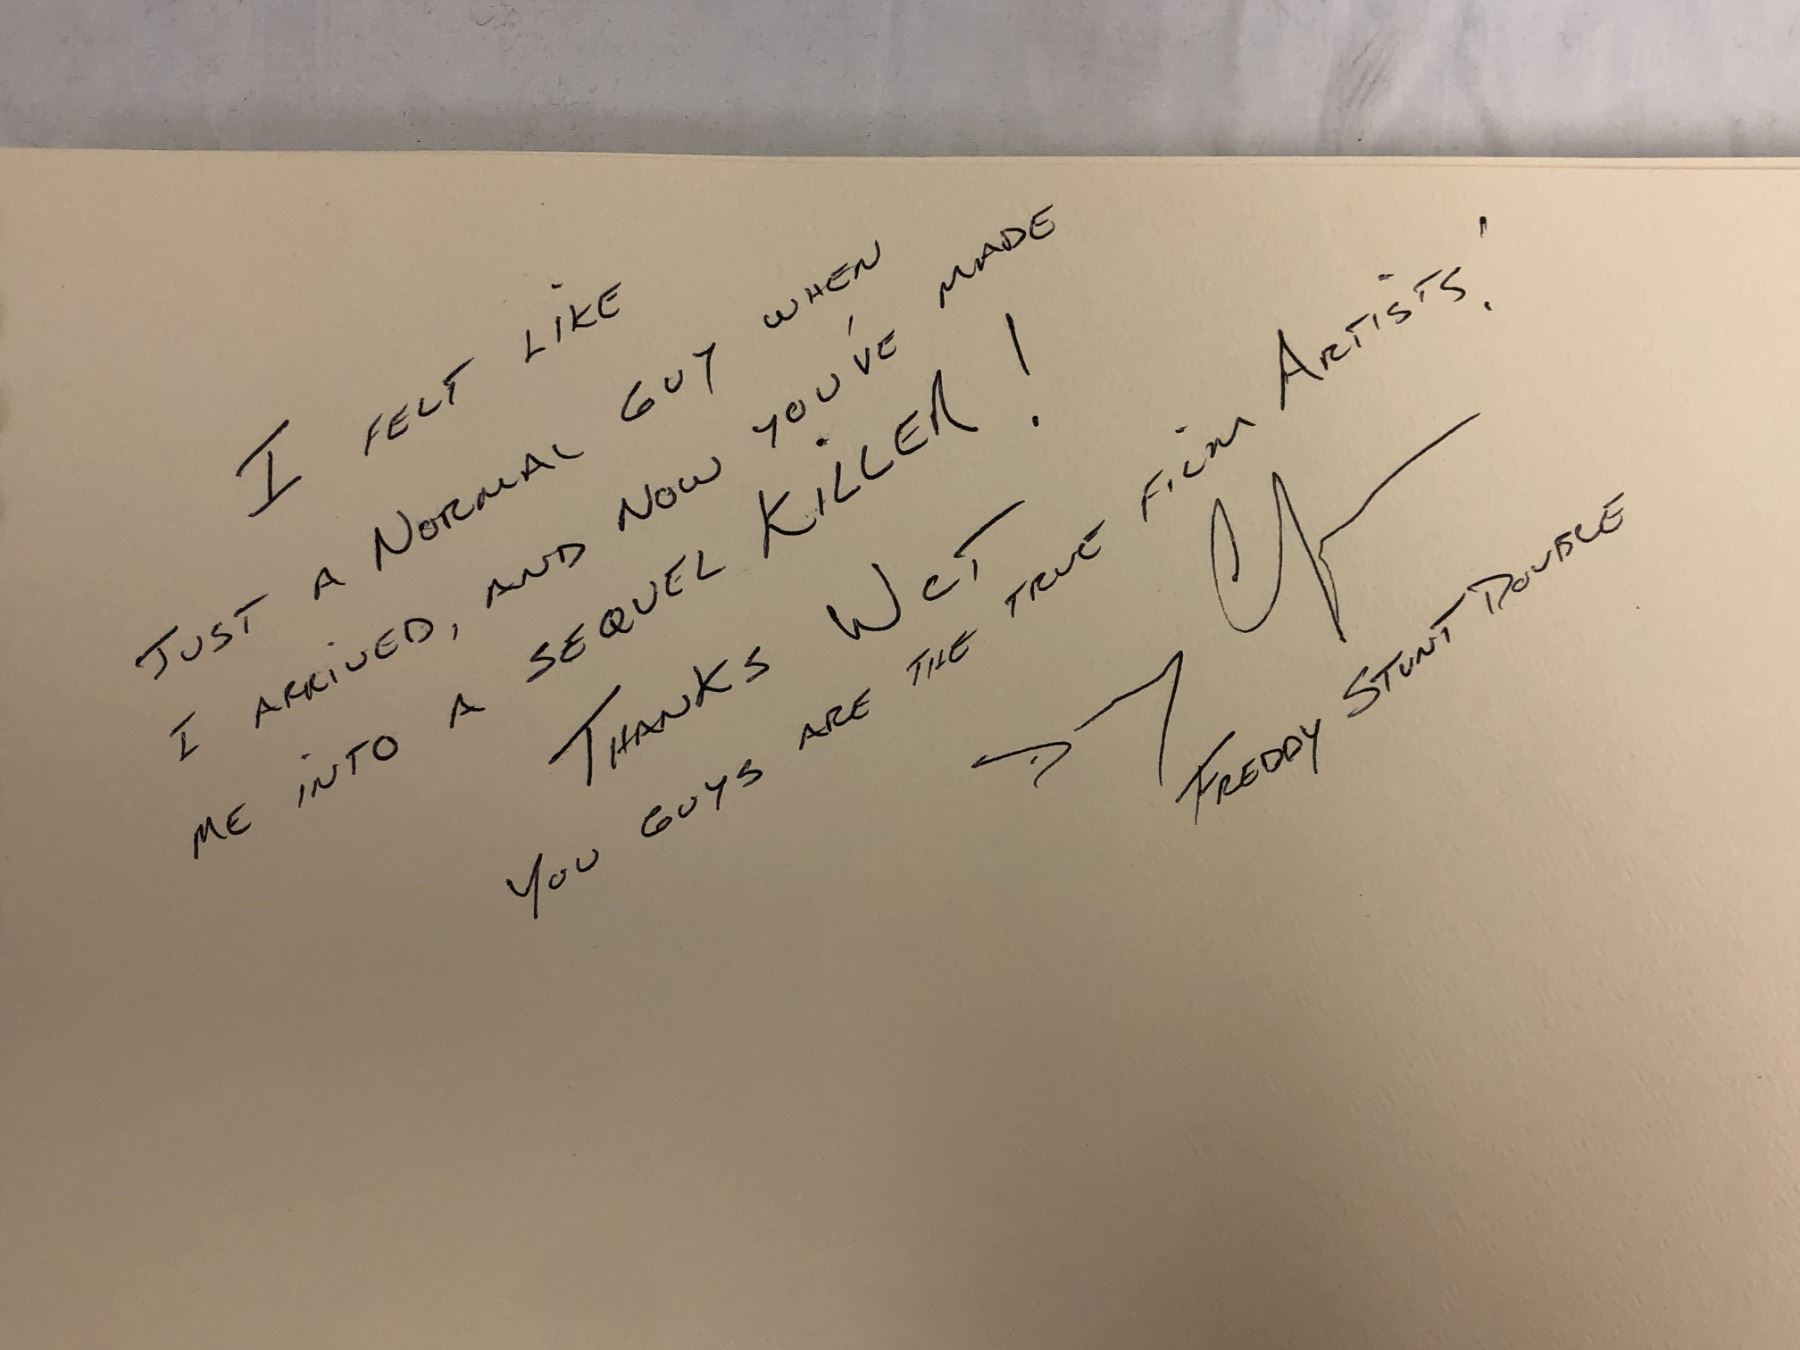 I FELT LIKE
JUST A NORMAL GUY WHEN
I ARRIVED, AND NOW YOU'VE MADE
ME INTO A SEQUEL KILLER!
THANKS WCT
YOU GUYS ARE THE TRUE FILM ARTISTS!
FREDDY STUNT DOUBLE